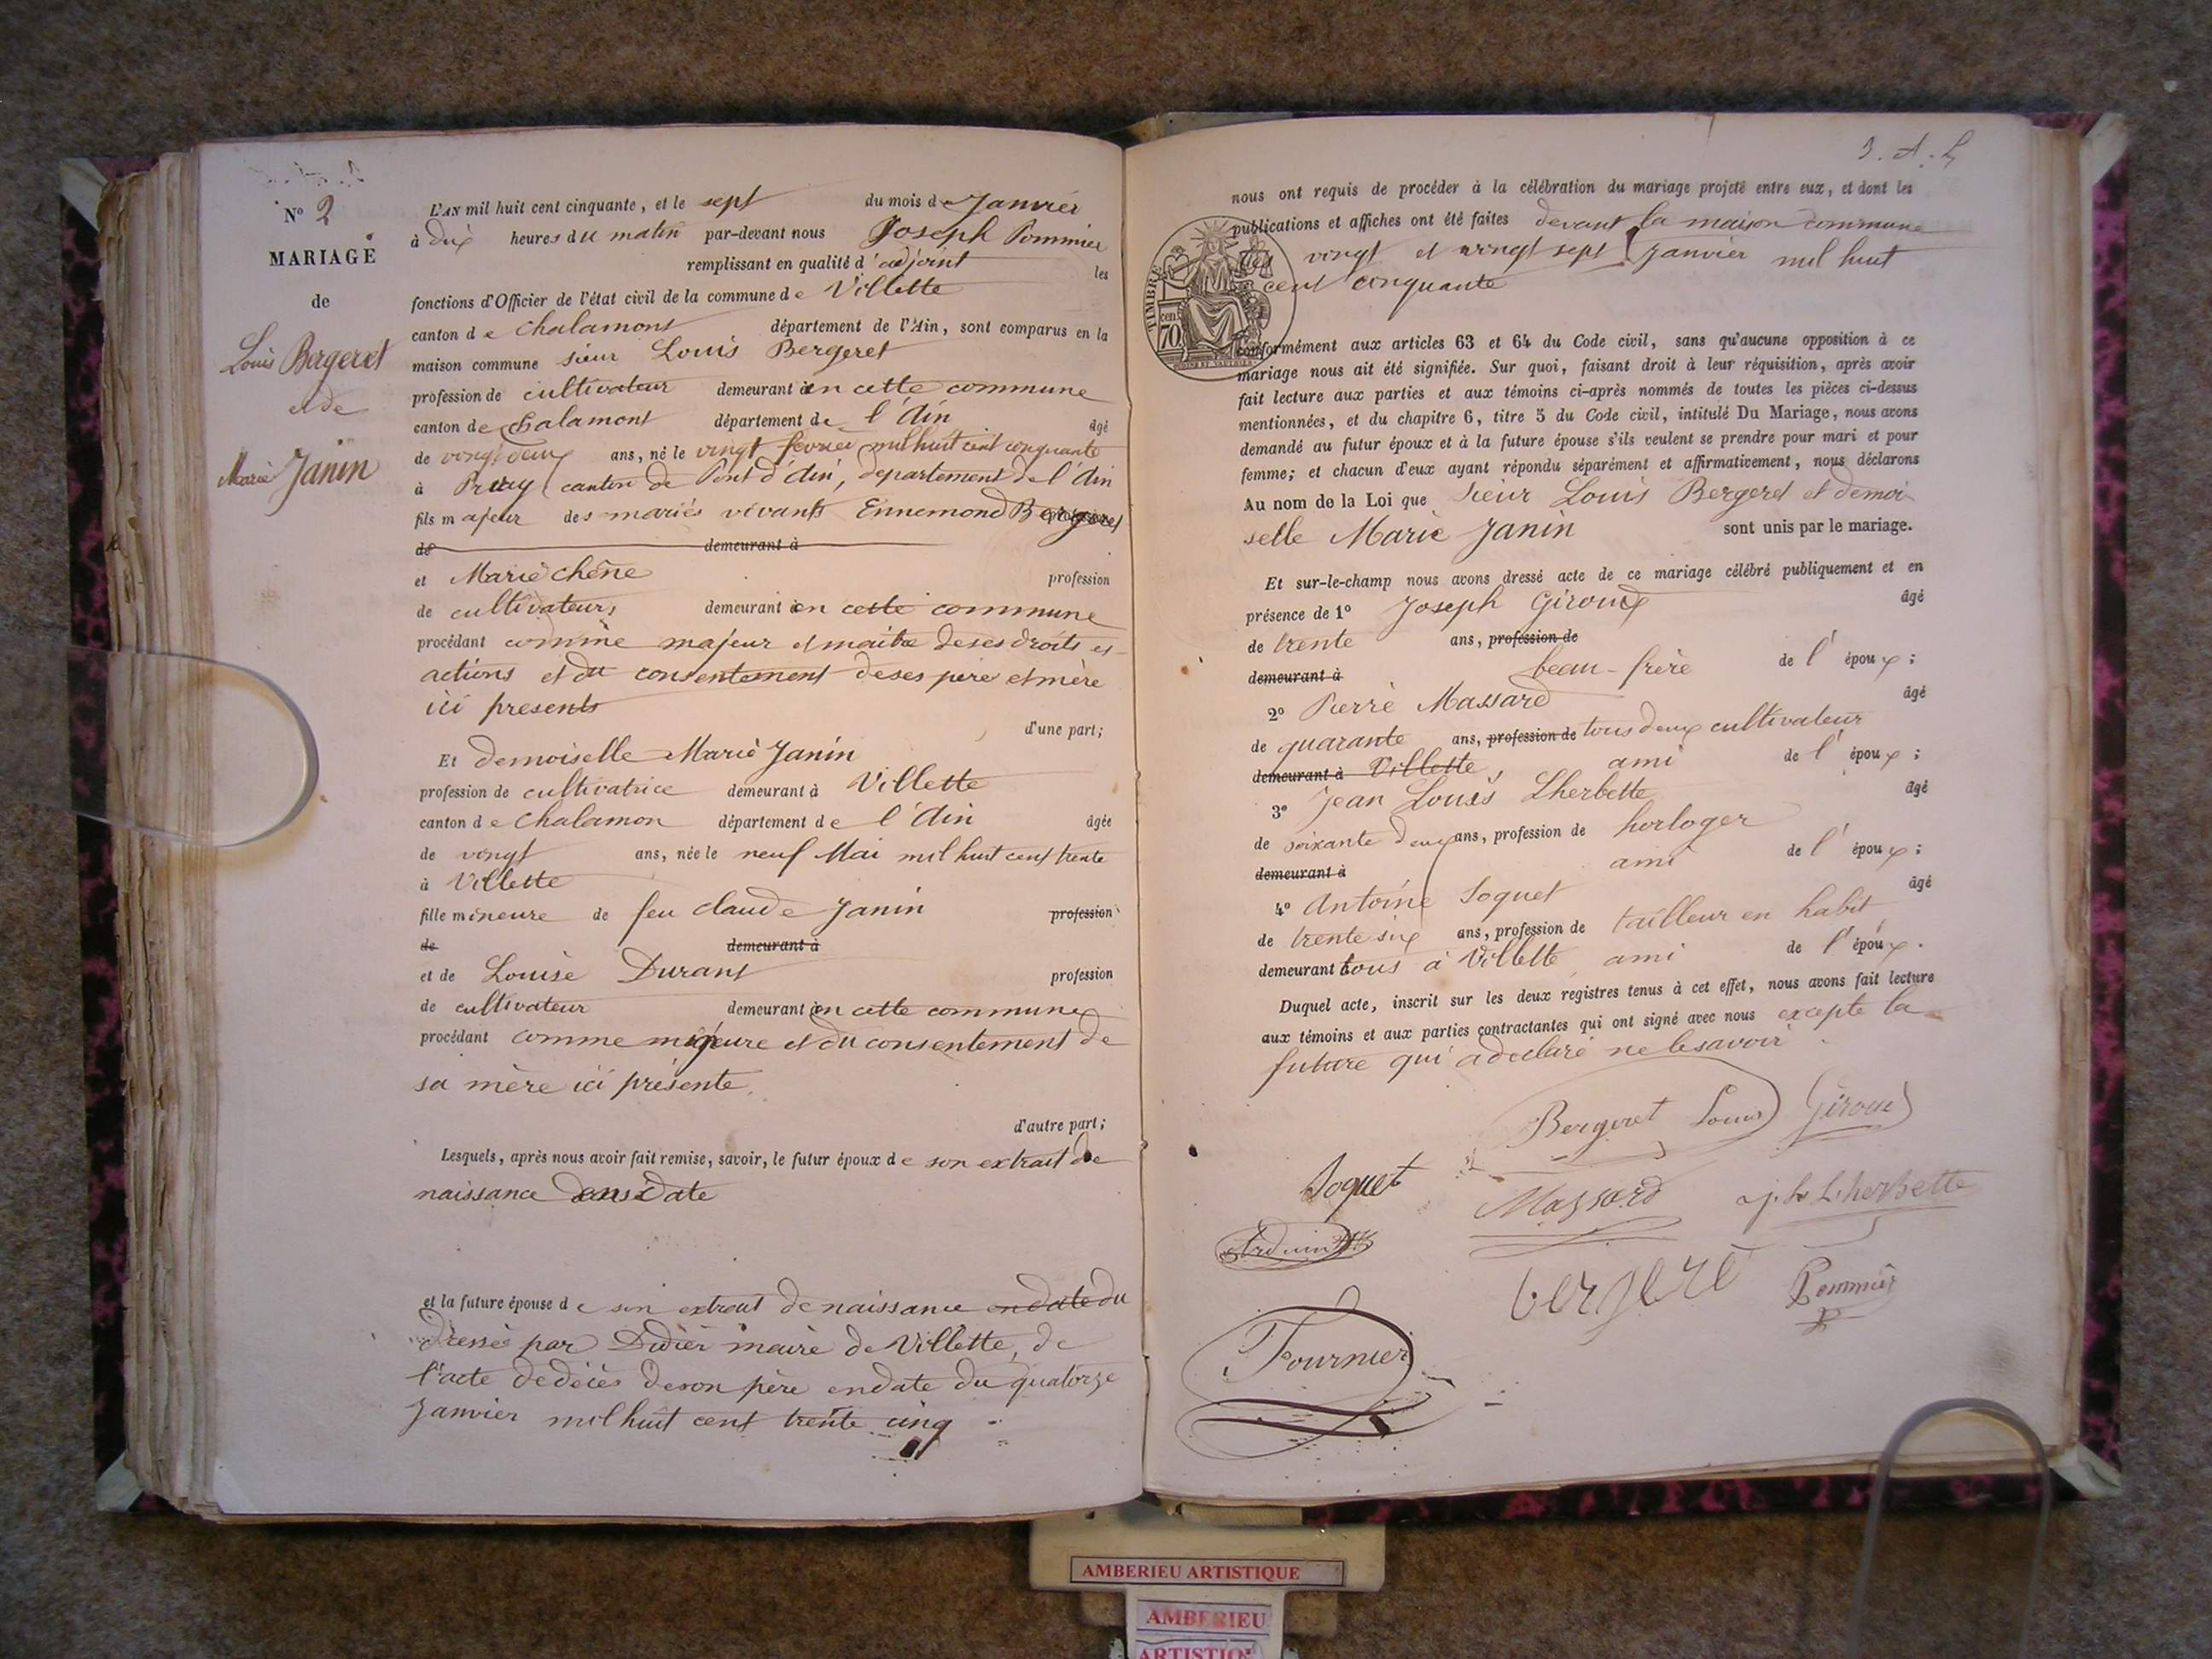 N° 2
MARIAGE
de
Louis Bergeret
et de
Marie Janin
L'AN mil huit cent cinquante, et le sept du mois de Janvier
à dix heures du matin par-devant nous Joseph Pommier
remplissant en qualité d'adjoint les
fonctions d'Officier de l'état civil de la commune de Villette
canton de Chalamont département de l'Ain, sont comparus en la
maison commune sieur Louis Bergeret
profession de cultivateur demeurant en cette commune
canton de Chalamont département de l'Ain âgé
de vingt deux ans, né le vingt fevrier mil huit cent cinquante
à Priay canton de Pont d'Ain, departement de l'Ain
fils majeur des mariés vivants Ennemond Bergeret
de demeurant à
et Marie Chêne profession
de cultivateurs demeurant en cette commune
procédant comme majeur et maitre de ses droits et
actions et du consentement de ses père et mère
ici presents
d'une part;
Et demoiselle Marie Janin
profession de cultivatrice demeurant à Villette
canton de Chalamon département de l'Ain âgée
de vingt ans, née le neuf Mai mil huit cent trente
à Villette
fille mineure de feu Claude Janin profession
de demeurant à
et de Louise Durant profession
de cultivateur demeurant en cette commune
procédant comme mineure et du consentement de
sa mère ici présente.
d'autre part;
Lesquels, après nous avoir fait remise, savoir, le futur époux de son extrait de
naissance date
et la future épouse de son extrait de naissance en date du
dressé par Didier maire de Villette, de
l'acte de décès de son père en date du quatorze
Janvier mil huit cent trente cinq
nous ont requis de procéder à la célébration du mariage projeté entre eux, et dont les
publications et affiches ont été faites devant la maison commune
les vingt et vingt sept Janvier mil huit
cent cinquante
TIMBRE
cent
70
conformément aux articles 63 et 64 du Code civil, sans qu'aucune opposition à ce
mariage nous ait été signifiée. Sur quoi, faisant droit à leur réquisition, après avoir
fait lecture aux parties et aux témoins ci-après nommés de toutes les pièces ci-dessus
mentionnées, et du chapitre 6, titre 5 du Code civil, intitulé Du Mariage, nous avons
demandé au futur époux et à la future épouse s'ils veulent se prendre pour mari et pour
femme; et chacun d'eux ayant répondu séparément et affirmativement, nous déclarons
Au nom de la Loi que sieur Louis Bergeret et demoi
selle Marie Janin sont unis par le mariage.
Et sur-le-champ nous avons dressé acte de ce mariage célébré publiquement et en
présence de 1° Joseph Giroud âgé
de trente ans, profession de
demeurant à beau-frère de l'époux;
2° Pierre Massard âgé
de quarante ans, profession de tous deux cultivateur
demeurant à Villette, ami de l'époux;
3° Jean Louis Lherbette âgé
de soixante deux ans, profession de horloger
demeurant à ami de l'époux;
4° Antoine Soquet âgé
de trente six ans, profession de tailleur en habit
demeurant tous à Villette ami de l'époux.
Duquel acte, inscrit sur les deux registres tenus à cet effet, nous avons fait lecture
aux témoins et aux parties contractantes qui ont signé avec nous excepte la
future qui a déclaré ne le savoir
Bergeret Louis Giroud
Soquet Massard j. L Lherbette
bergere Pommier
Fournier
AMBERIEU ARTISTIQUE
AMBERIEU